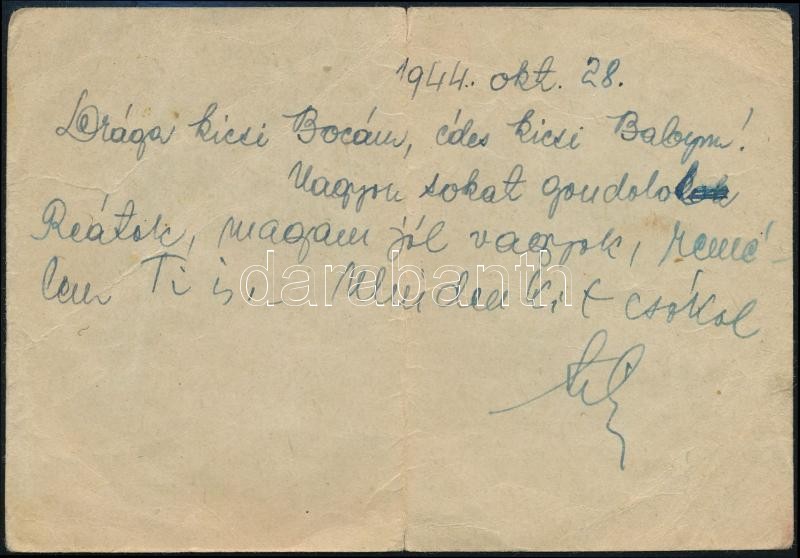 1944. okt. 28.
Drága kicsi Bocám, édes kicsi Babym!
Nagyon sokat gondolok
Reátok, magam jól vagyok, remé-
lem Ti is. Mindenkit csókol
darabanth